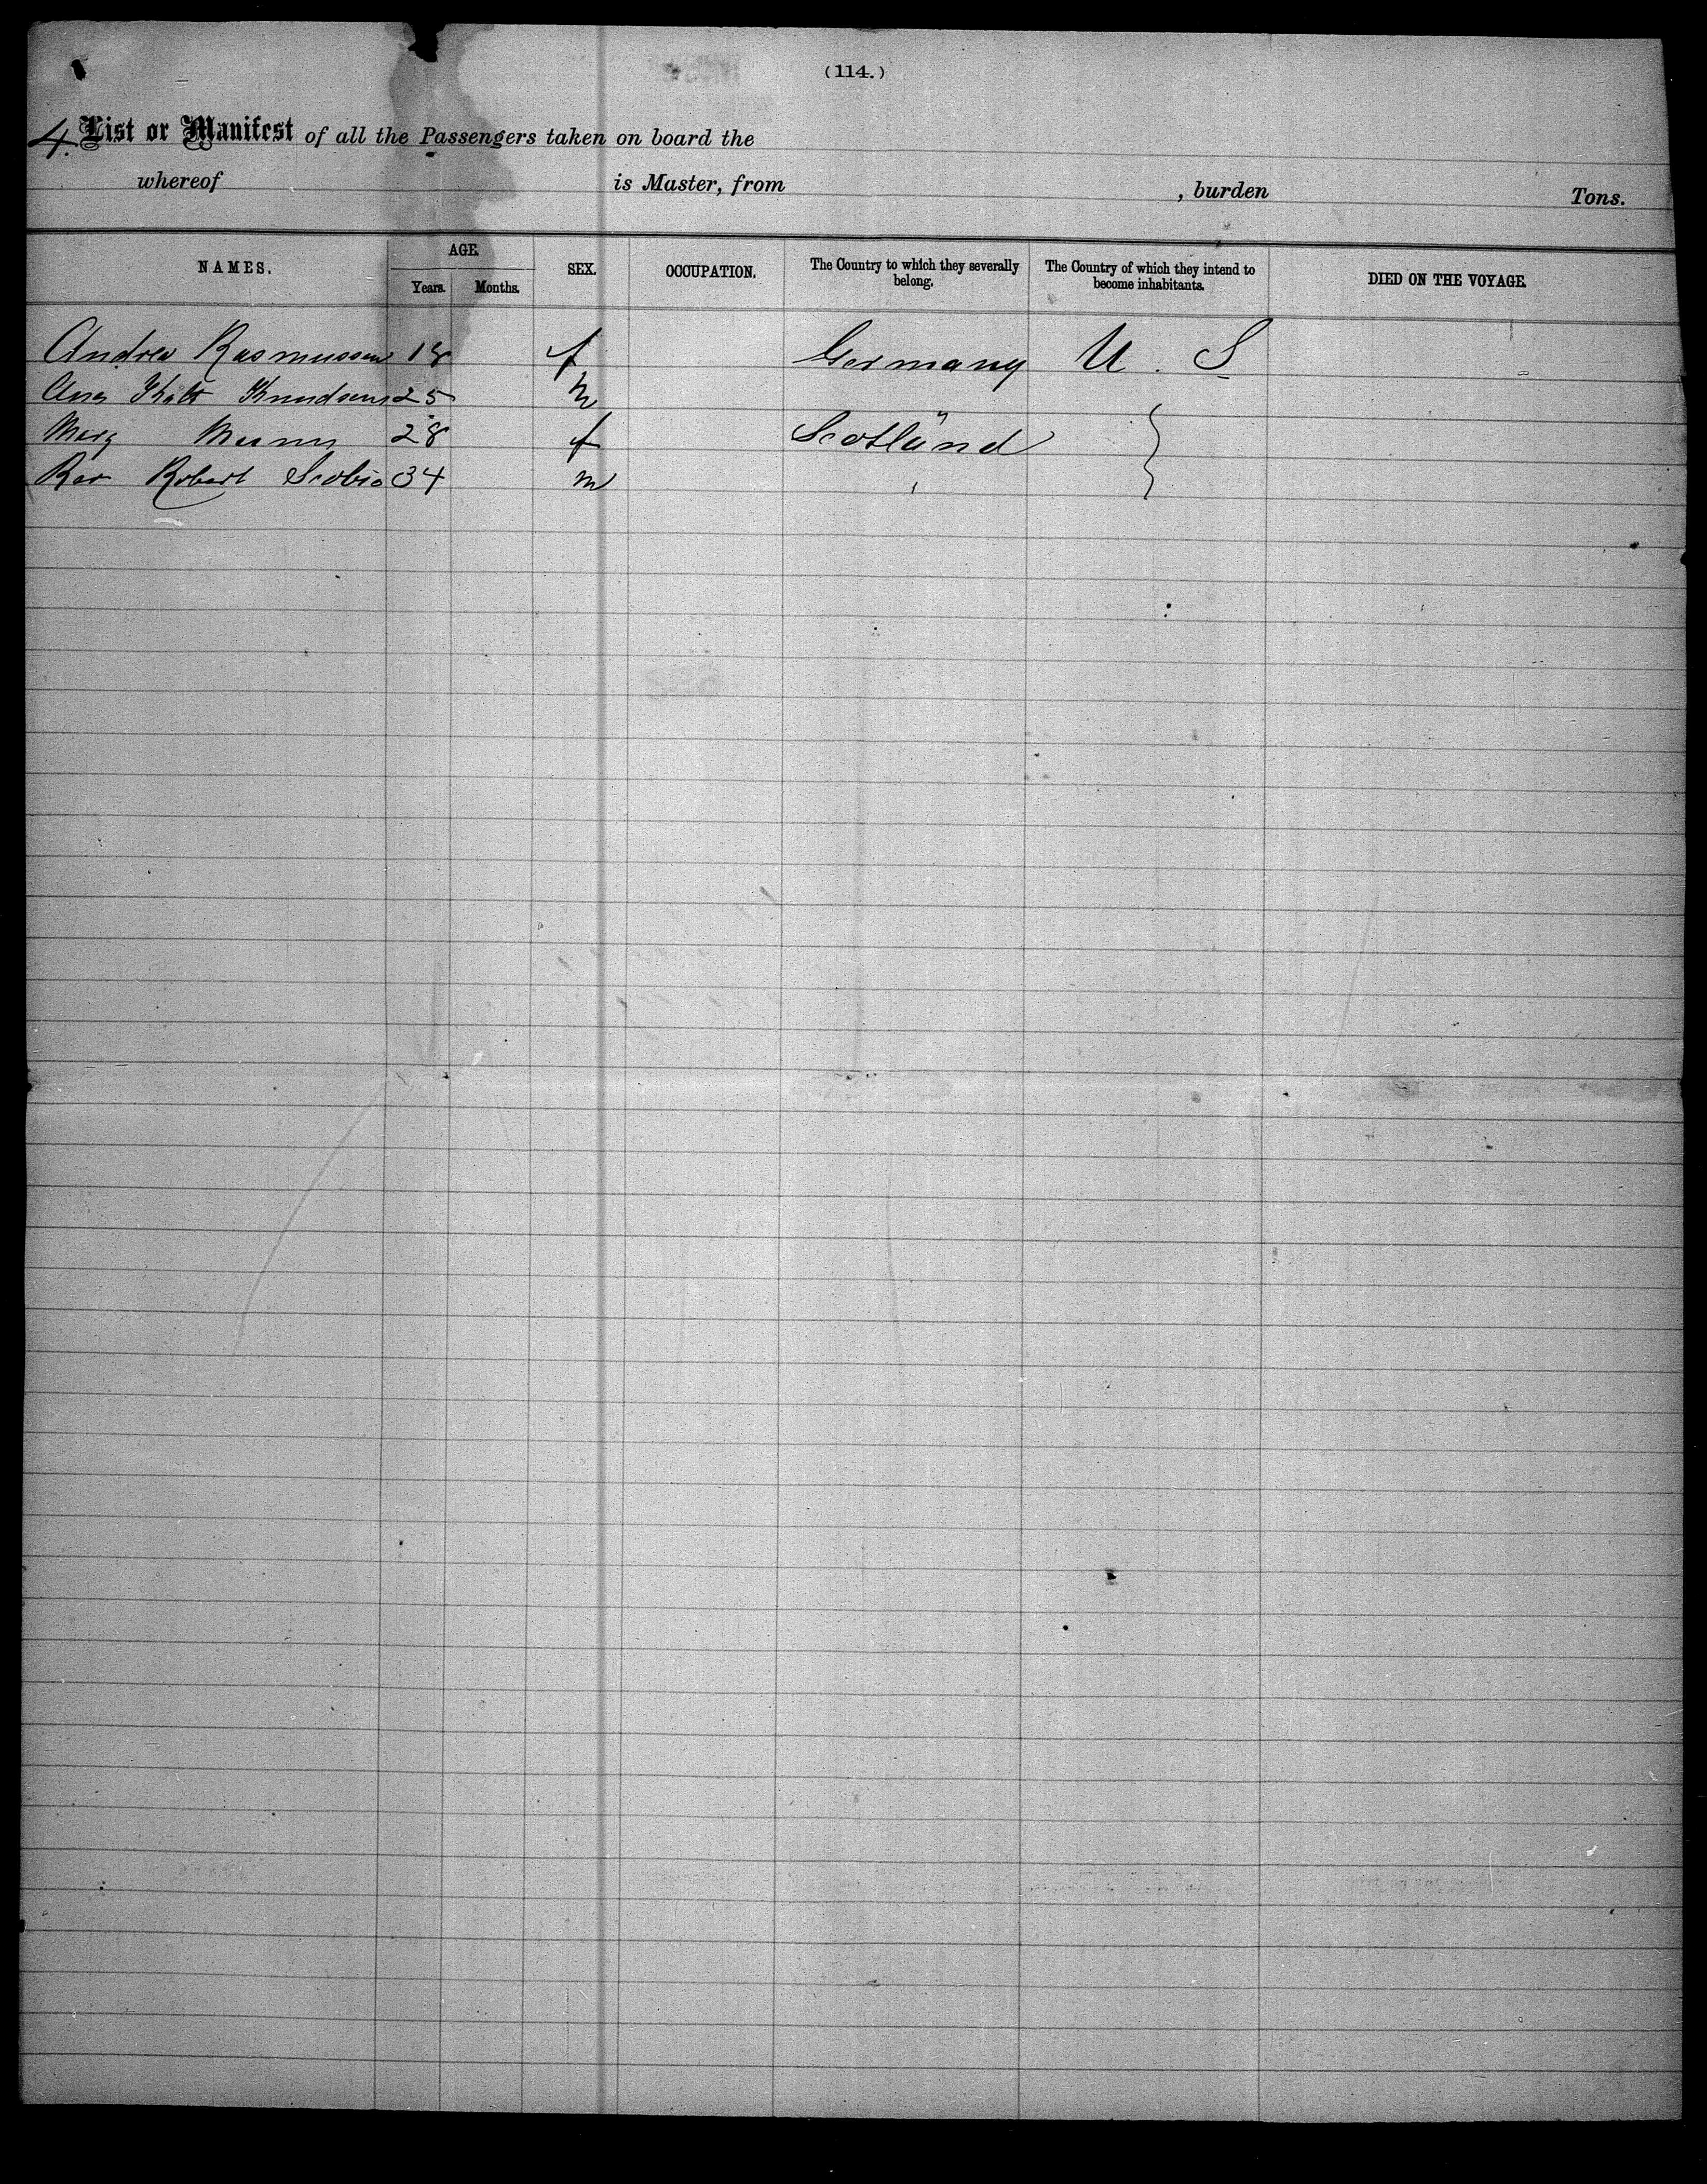 (114.)
4. List or Manifest of all the Passengers taken on board the
whereof is Master, from , burden Tons.
NAMES. AGE. Years. Months. SEX. OCCUPATION. The Country to which they severally belong. The Country of which they intend to become inhabitants. DIED ON THE VOYAGE.
Andrea Rasmussen 18 f Germany U. S
Knudsen 25 m "
Marg 28 f Scotland
Rev Robert Scobie 34 m